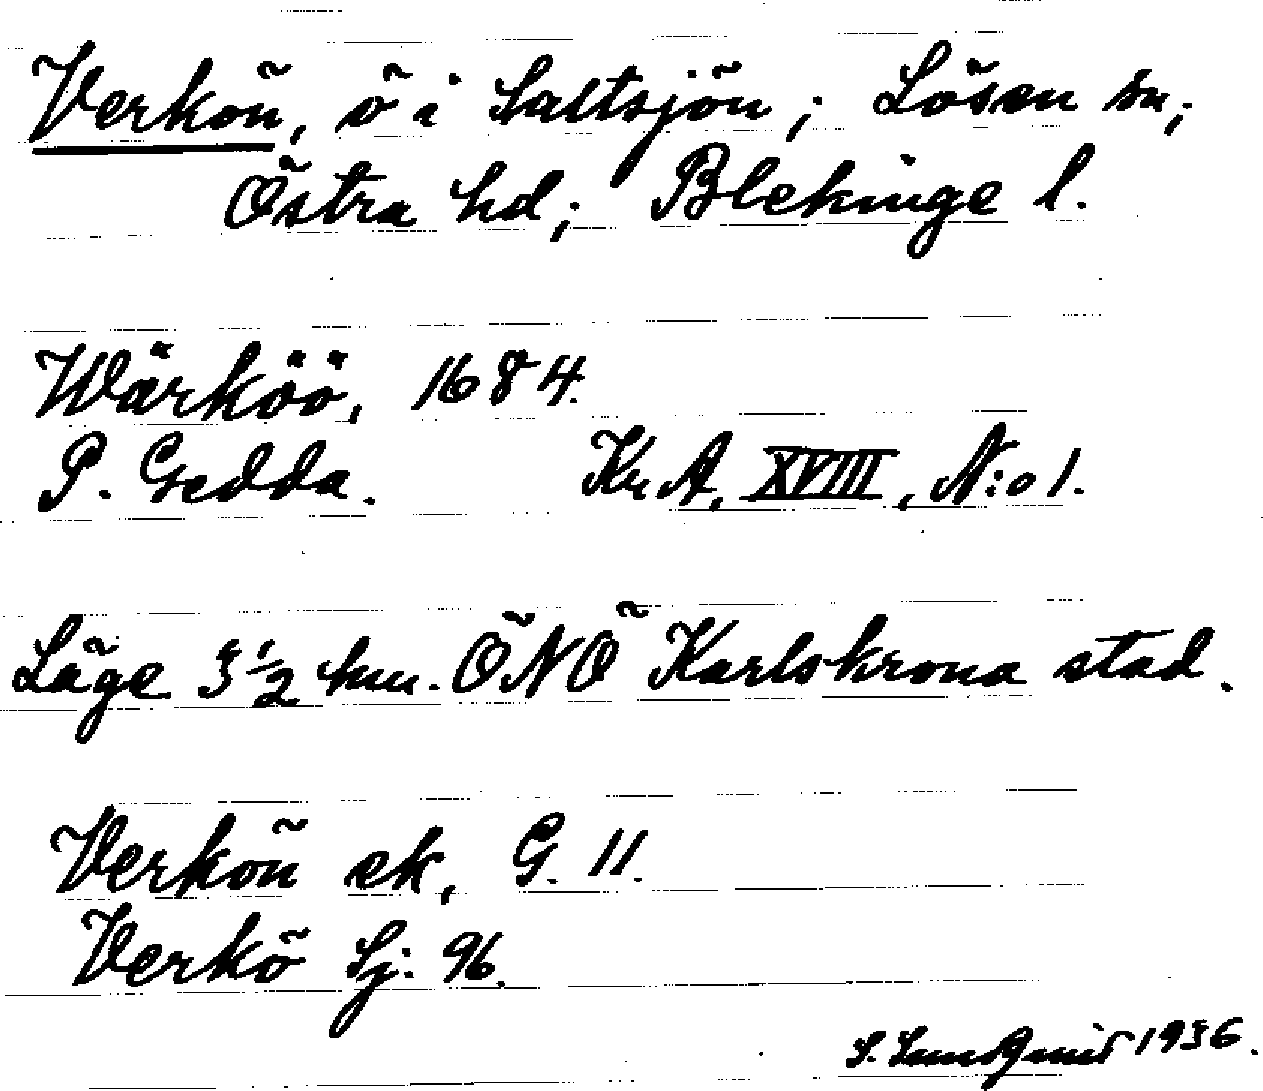 Verkön, ö i Saltsjön; Lösen sn;
Östra hd; Blekinge l.
Wärköö, 1684.
P. Gedda. Kr A, XVIII, N:o 1.
Läge 5 ½ km. ÖNÖ Karlskrona stad.
Verkön ek, G. 11.
Verkö Sj: 96.
S. Lundquist 1936.